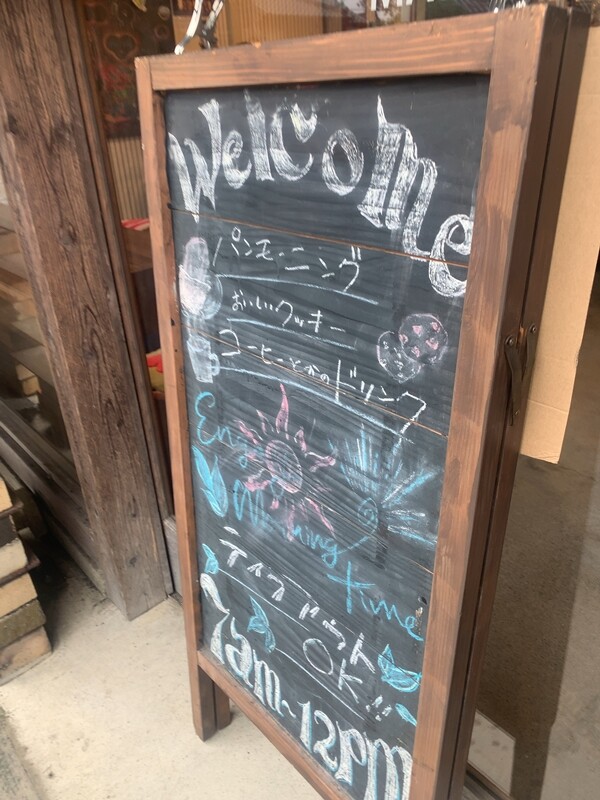 Welcome
パンモーニング
おいしいクッキー
コーヒーとかのドリンク
Enjoy
Morning
time
テイクアウト
OK!!
7am~12PM